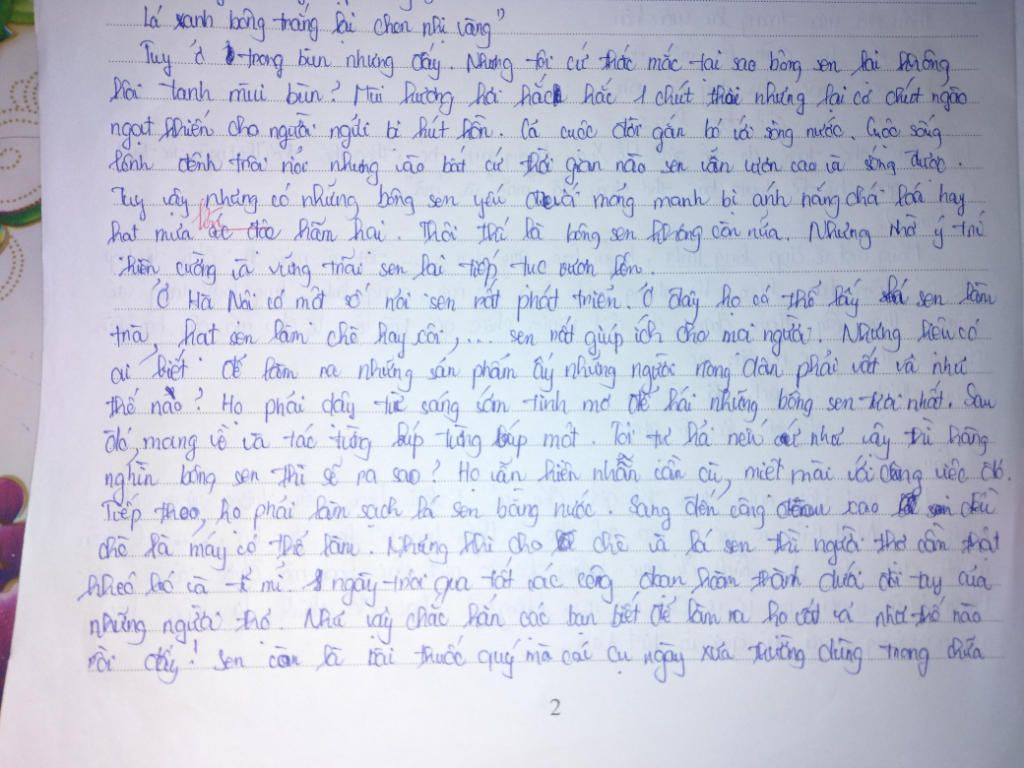 Lá xanh bông trắng lại chen nhị vàng"
Tuy ở trong bùn nhưng đấy. Nhưng tôi cứ thắc mắc tại sao bông sen lại không
hôi tanh mùi bùn? Mùi hương hơi hắc hắc 1 chút thôi nhưng lại có chút ngào
ngọt khiến cho người ngửi bị hút hồn. Cả cuộc đời gắn bó với sông nước. Cuộc sống
lênh đênh trôi nổi nhưng vào bất cứ thời gian nào sen vẫn vươn cao và sống được.
Tuy vậy nhưng có những bông sen yếu đuối mỏng manh bị ánh nắng chói loá hay
hạt mưa độc hãm hại. Thôi thế là bông sen không còn nữa. Nhưng nhờ ý trí
kiên cường và vững trãi sen lại tiếp tục vươn lên.
Ở Hà Nội có một số nơi sen rất phát triển. Ở đây họ có thể lấy sen làm
trà, hạt sen làm chè hay cốm,... sen rất giúp ích cho mọi người. Nhưng liệu có
ai biết để làm ra những sản phẩm ấy những người nông dân phải vất vả như
thế nào? Họ phải dậy từ sáng sớm tinh mơ để hái những bông sen tươi nhất. Sau
đó, mang về và tác từng búp từng búp một. Tôi tự hỏi nếu cứ như vậy thì hàng
nghìn bông sen thì sẽ ra sao? Họ vẫn kiên nhẫn cần cù, miết mài với công việc đó.
Tiếp theo, họ phải làm sạch lá sen bằng nước. Sang đến công xao đều
chè là máy có thể làm. Nhưng khi cho chè và lá sen thì người thợ cần thật
khéo léo và tỉ mỉ. 1 ngày trôi qua tất các công đoạn hoàn thành dưới đôi tay của
những người thợ. Như vậy chắc hẳn các bạn biết để làm ra họ vất vả như thế nào
rồi đấy! sen còn là bài thuốc quý mà các cụ ngày xưa thường dùng trong chữa
2